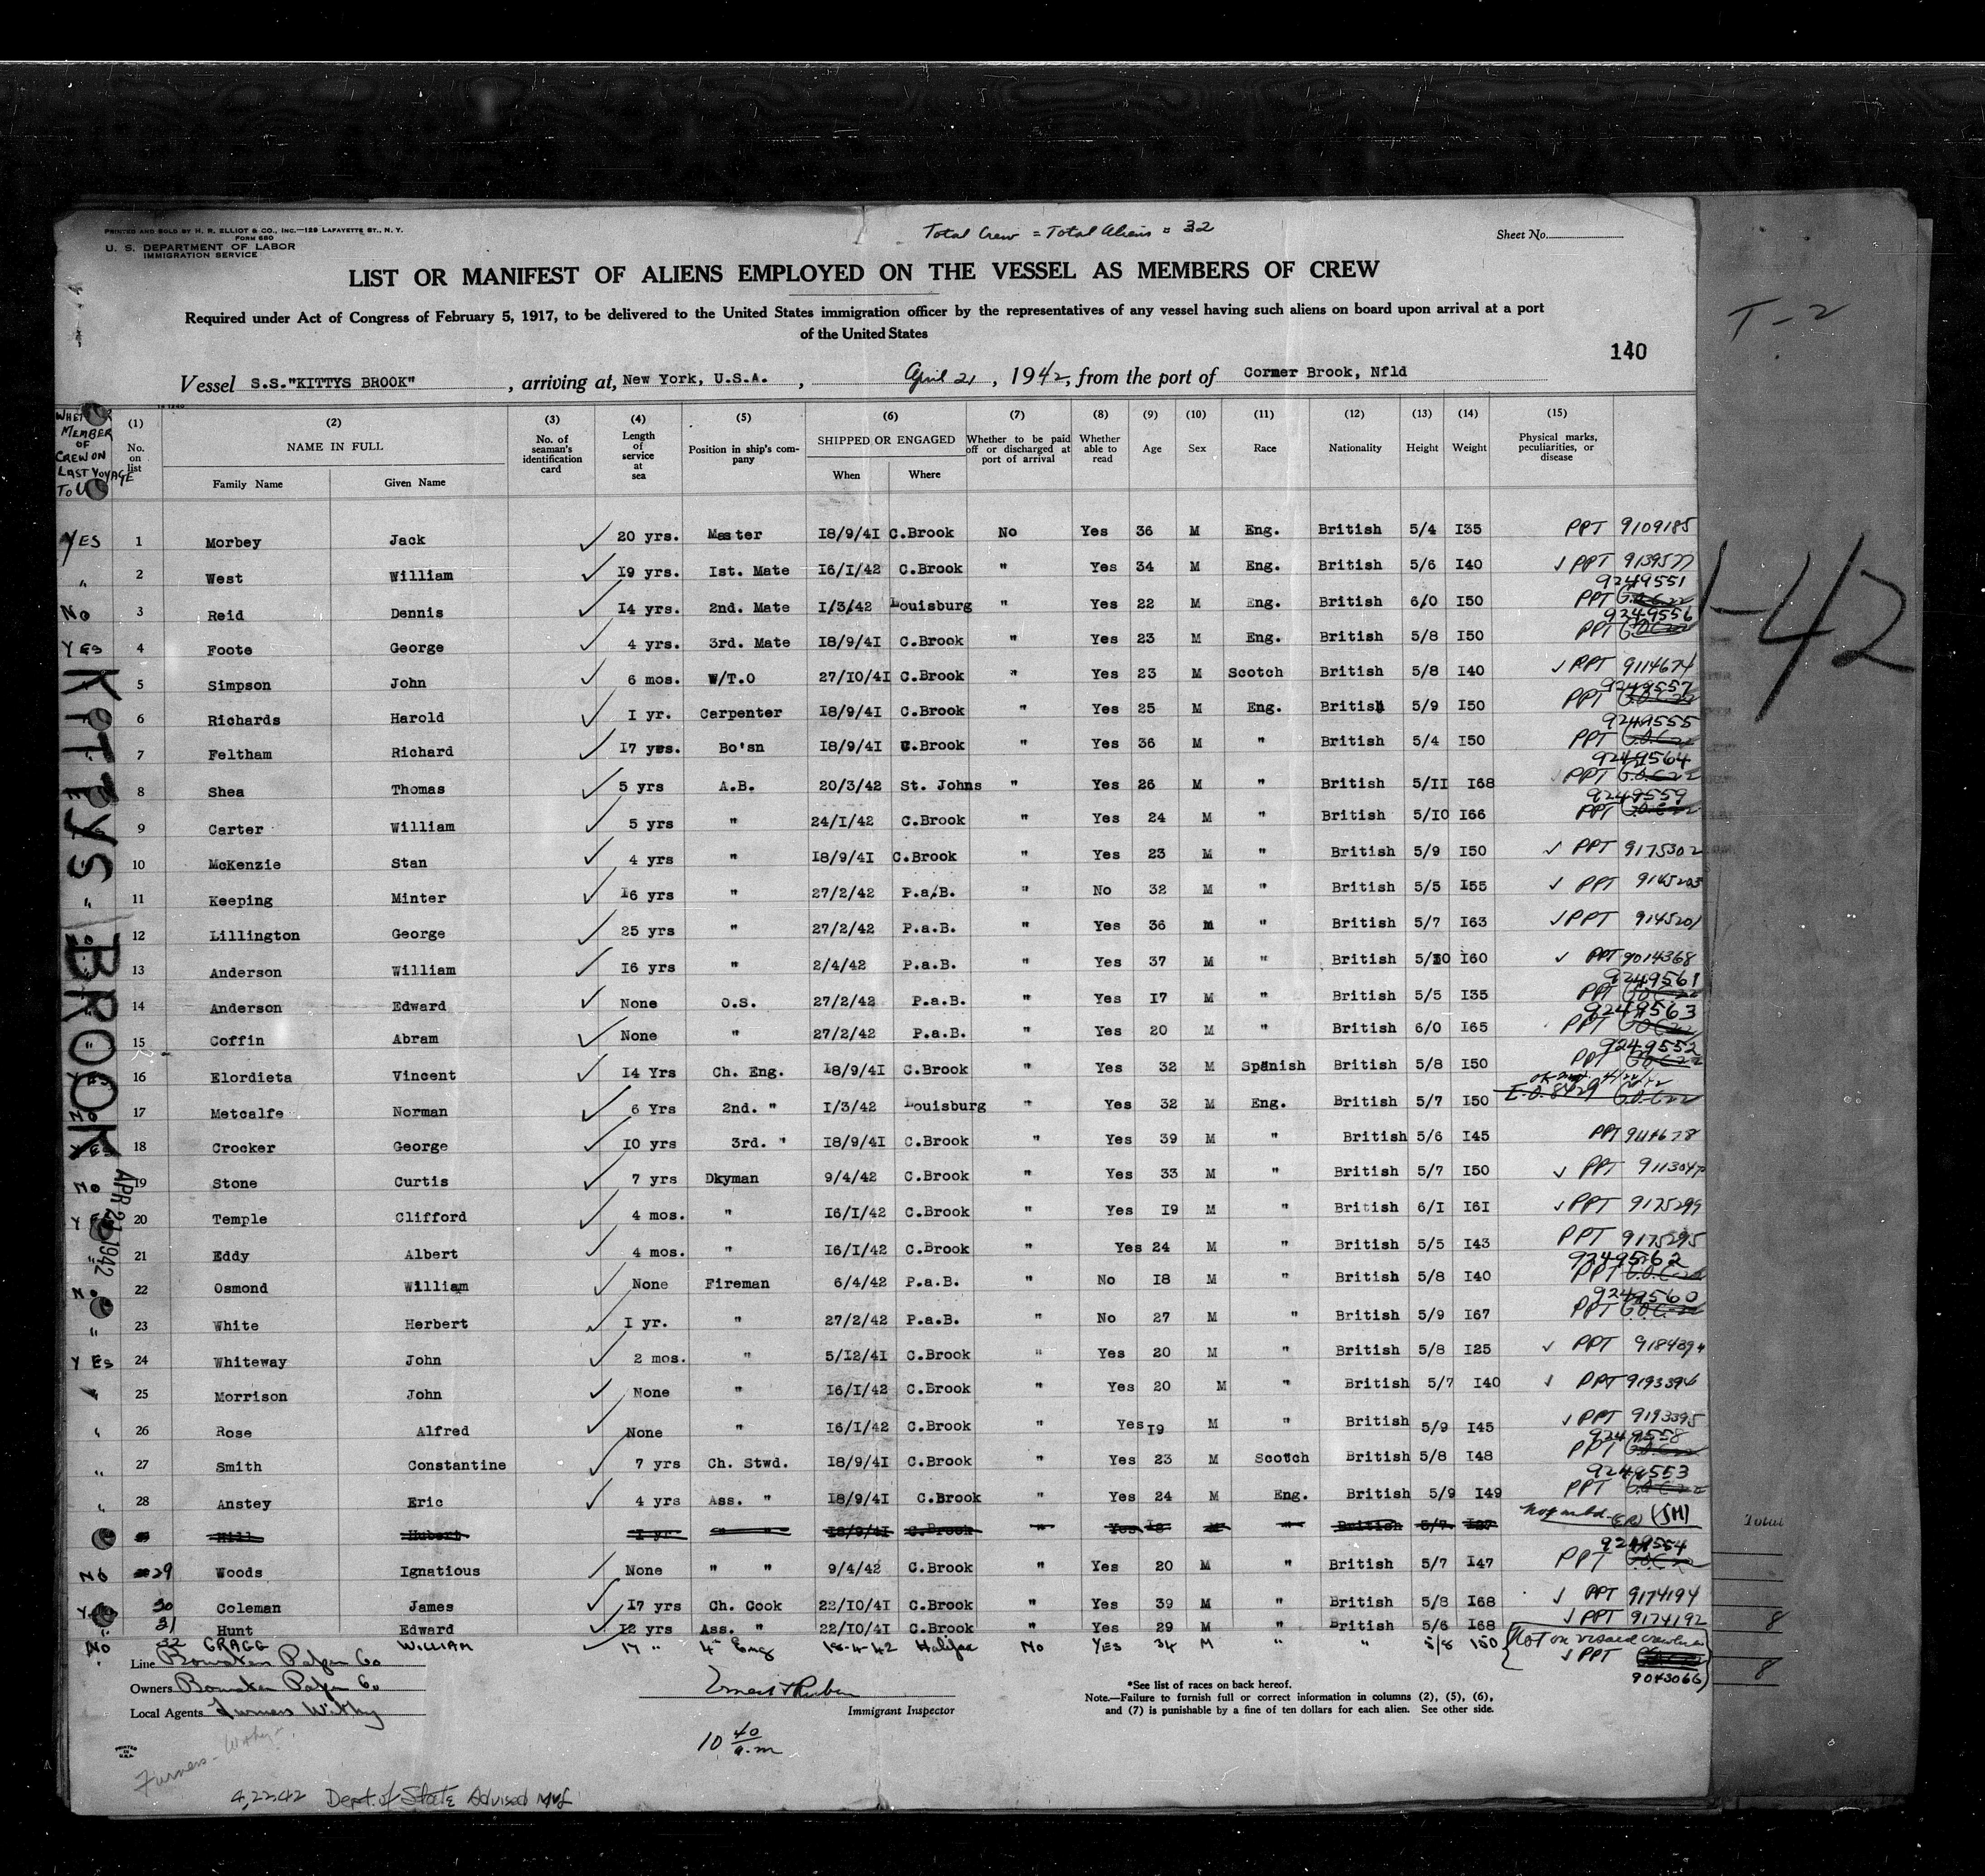 PRINTED AND SOLD BY H. R. ELLIOT & CO., INC.—129 LAFAYETTE ST., N. Y.
FORM 680
U. S. DEPARTMENT OF LABOR
IMMIGRATION SERVICE
Total Crew = Total Aliens = 32
Sheet No.
LIST OR MANIFEST OF ALIENS EMPLOYED ON THE VESSEL AS MEMBERS OF CREW
Required under Act of Congress of February 5, 1917, to be delivered to the United States immigration officer by the representatives of any vessel having such aliens on board upon arrival at a port
of the United States
T-2
140
Vessel S.S."KITTYS BROOK" , arriving at, New York, U.S.A. , April 21, 1942, from the port of Corner Brook, Nfld
WHETHER MEMBER OF CREW ON LAST VOYAGE TO U
(1) No. on list
(2) NAME IN FULL Family Name Given Name
(3) No. of seaman's identification card
(4) Length of service at sea
(5) Position in ship's company
(6) SHIPPED OR ENGAGED When Where
(7) Whether to be paid off or discharged at port of arrival
(8) Whether able to read
(9) Age
(10) Sex
(11) Race
(12) Nationality
(13) Height
(14) Weight
(15) Physical marks, peculiarities, or disease
YES 1 Morbey Jack ✓ 20 yrs. Master I8/9/4I C.Brook No Yes 36 M Eng. British 5/4 I35 PPT 9109185
" 2 West William ✓ I9 yrs. Ist. Mate I6/I/42 C.Brook " Yes 34 M Eng. British 5/6 I40 ✓ PPT 9139577
No 3 Reid Dennis ✓ I4 yrs. 2nd. Mate I/3/42 Louisburg " Yes 22 M Eng. British 6/0 I50 PPT 9249551
YES 4 Foote George ✓ 4 yrs. 3rd. Mate I8/9/4I C.Brook " Yes 23 M Eng. British 5/8 I50 PPT 9249556
5 Simpson John ✓ 6 mos. W/T.O 27/IO/4I C.Brook " Yes 23 M Scotch British 5/8 I40 ✓ PPT 9114674
6 Richards Harold ✓ I yr. Carpenter I8/9/4I C.Brook " Yes 25 M Eng. British 5/9 I50 PPT 9249557
7 Feltham Richard ✓ I7 yrs. Bo'sn I8/9/4I C.Brook " Yes 36 M " British 5/4 I50 PPT 9249555
8 Shea Thomas ✓ 5 yrs A.B. 20/3/42 St. Johns " Yes 26 M " British 5/II I68 PPT 9249564
9 Carter William ✓ 5 yrs " 24/I/42 C.Brook " Yes 24 M " British 5/IO I66 PPT 9249559
10 McKenzie Stan ✓ 4 yrs " I8/9/4I C.Brook " Yes 23 M " British 5/9 I50 ✓ PPT 9175302
" 11 Keeping Minter ✓ I6 yrs " 27/2/42 P.a.B. " No 32 M " British 5/5 I55 ✓ PPT 9145203
12 Lillington George ✓ 25 yrs " 27/2/42 P.a.B. " Yes 36 M " British 5/7 I63 ✓ PPT 9145201
13 Anderson William ✓ I6 yrs " 2/4/42 P.a.B. " Yes 37 M " British 5/IO I60 ✓ PPT 9014368
14 Anderson Edward ✓ None O.S. 27/2/42 P.a.B. " Yes I7 M " British 5/5 I35 PPT 9249561
15 Coffin Abram ✓ None " 27/2/42 P.a.B. " Yes 20 M " British 6/0 I65 PPT 9249563
16 Elordieta Vincent ✓ I4 Yrs Ch. Eng. I8/9/4I C.Brook " Yes 32 M Spanish British 5/8 I50 PPT 9249552
17 Metcalfe Norman ✓ 6 Yrs 2nd. " I/3/42 Louisburg " Yes 32 M Eng. British 5/7 I50
18 Crocker George ✓ IO yrs 3rd. " I8/9/4I C.Brook " Yes 39 M " British 5/6 I45 PPT
No 19 Stone Curtis ✓ 7 yrs Dkyman 9/4/42 C.Brook " Yes 33 M " British 5/7 I50 ✓ PPT
20 Temple Clifford ✓ 4 mos. " I6/I/42 C.Brook " Yes I9 M " British 6/I I6I ✓ PPT 9175299
21 Eddy Albert ✓ 4 mos. " I6/I/42 C.Brook " Yes 24 M " British 5/5 I43 PPT 9175295
No 22 Osmond William ✓ None Fireman 6/4/42 P.a.B. " No I8 M " British 5/8 I40 PPT 9249562
" 23 White Herbert ✓ I yr. " 27/2/42 P.a.B. " No 27 M " British 5/9 I67 PPT 9249560
YES 24 Whiteway John ✓ 2 mos. " 5/I2/4I C.Brook " Yes 20 M " British 5/8 I25 ✓ PPT 9184394
" 25 Morrison John ✓ None " I6/I/42 C.Brook " Yes 20 M " British 5/7 I40 ✓ PPT 9193396
" 26 Rose Alfred ✓ None " I6/I/42 C.Brook " Yes I9 M " British 5/9 I45 ✓ PPT 9193395
" 27 Smith Constantine ✓ 7 yrs Ch. Stwd. I8/9/4I C.Brook " Yes 23 M Scotch British 5/8 I48 PPT 9249558
" 28 Anstey Eric ✓ 4 yrs Ass. " I8/9/4I C.Brook " Yes 24 M Eng. British 5/9 I49 PPT 9249553
Hill Hubert I yr " " I8/9/4I C.Brook " Yes I8 M " British 5/7 I27
No 29 Woods Ignatious ✓ None " " 9/4/42 C.Brook " Yes 20 M " British 5/7 I47 PPT 9249554
30 Coleman James ✓ I7 yrs Ch. Cook 22/IO/4I C.Brook " Yes 39 M " British 5/8 I68 ✓ PPT 9174194
31 Hunt Edward ✓ I2 yrs Ass. " 22/IO/4I C.Brook " Yes 29 M " British 5/6 I68 ✓ PPT 9174192
No 32 GRAGG WILLIAM ✓ 17 " 4th Eng 18-4-42 Halifax No YES 34 M " " 5/8 150 Not on visaed crewlist ✓ PPT 9043066
KITTYS BROOK
APR 21 1942
1-42
Total
8
8
Line Bowater Paper Co
Owners Bowater Paper Co.
Local Agents Furness Withy
Immigrant Inspector
*See list of races on back hereof.
Note.—Failure to furnish full or correct information in columns (2), (5), (6),
and (7) is punishable by a fine of ten dollars for each alien. See other side.
10 40 a.m
PRINTED IN U.S.A.
Furness-Withy
4,22,42 Dept. of State Advised